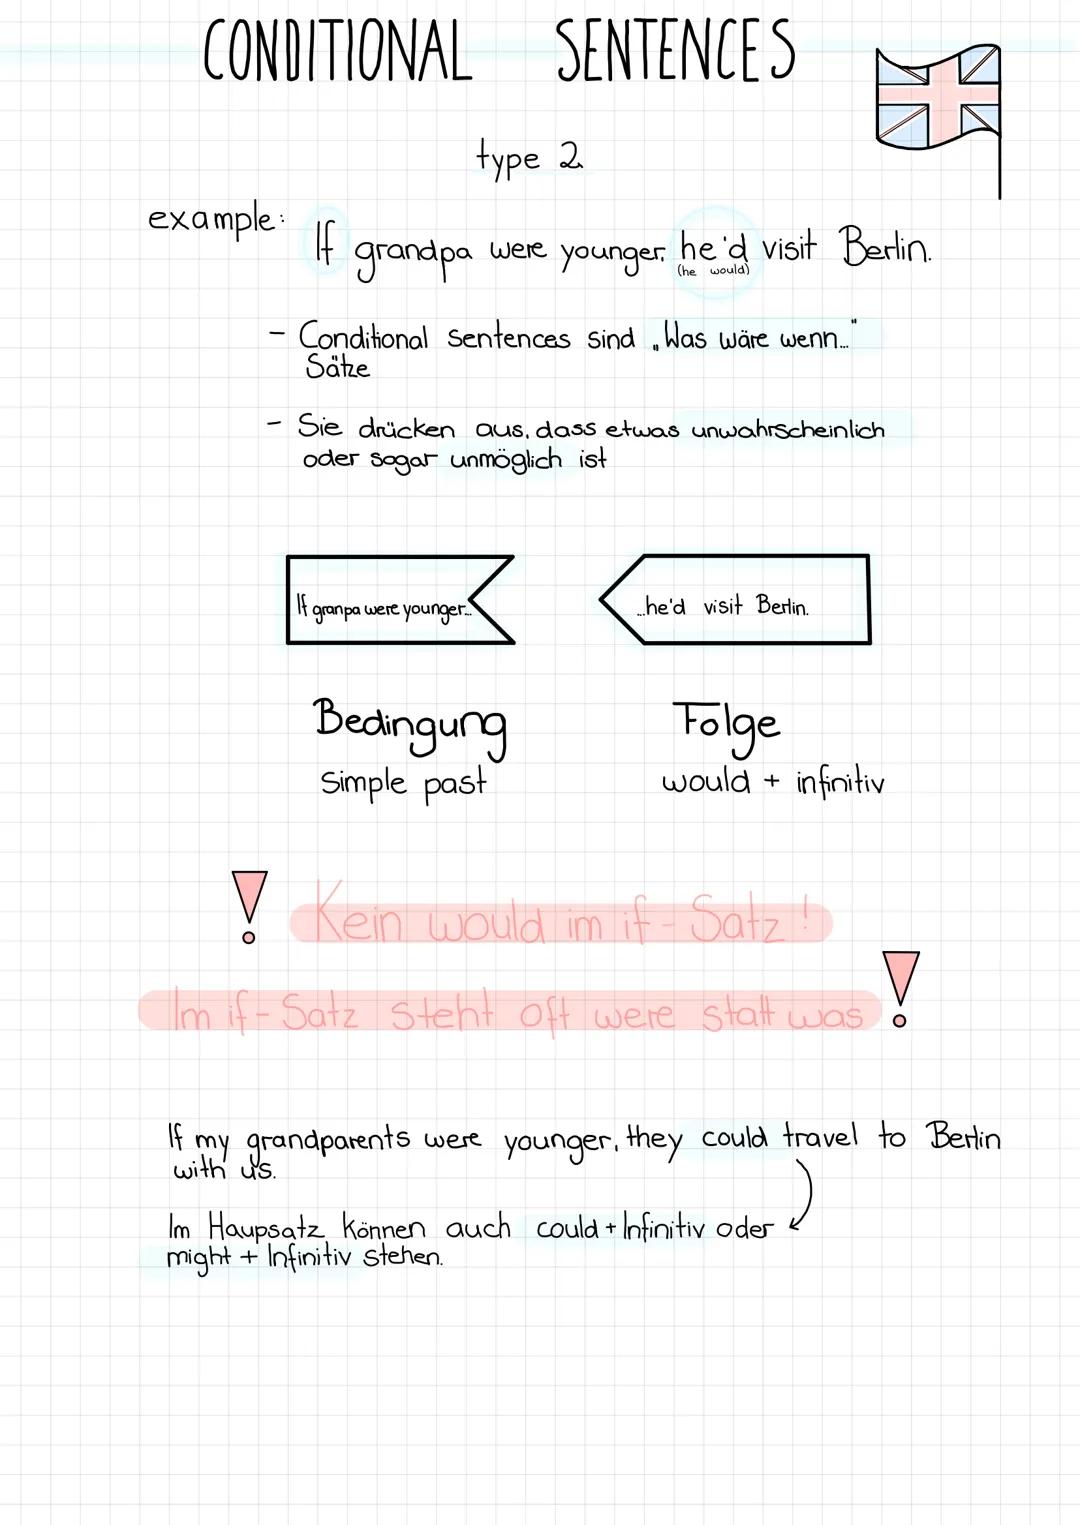 CONDITIONAL SENTENCES
type 2
example:
If grandpa were younger, he'd visit Berlin.
(he would)
- Conditional sentences sind „Was wäre wenn..."
Sätze
- Sie drücken aus, dass etwas unwahrscheinlich
oder sogar unmöglich ist
If granpa were younger...
...he'd visit Berlin.
Bedingung
Simple past
Folge
would + infinitiv
! Kein would im if-Satz!
Im if-Satz steht oft were statt was !
If my grandparents were younger, they could travel to Berlin
with us.
Im Haupsatz können auch could + Infinitiv oder
might + Infinitiv stehen.